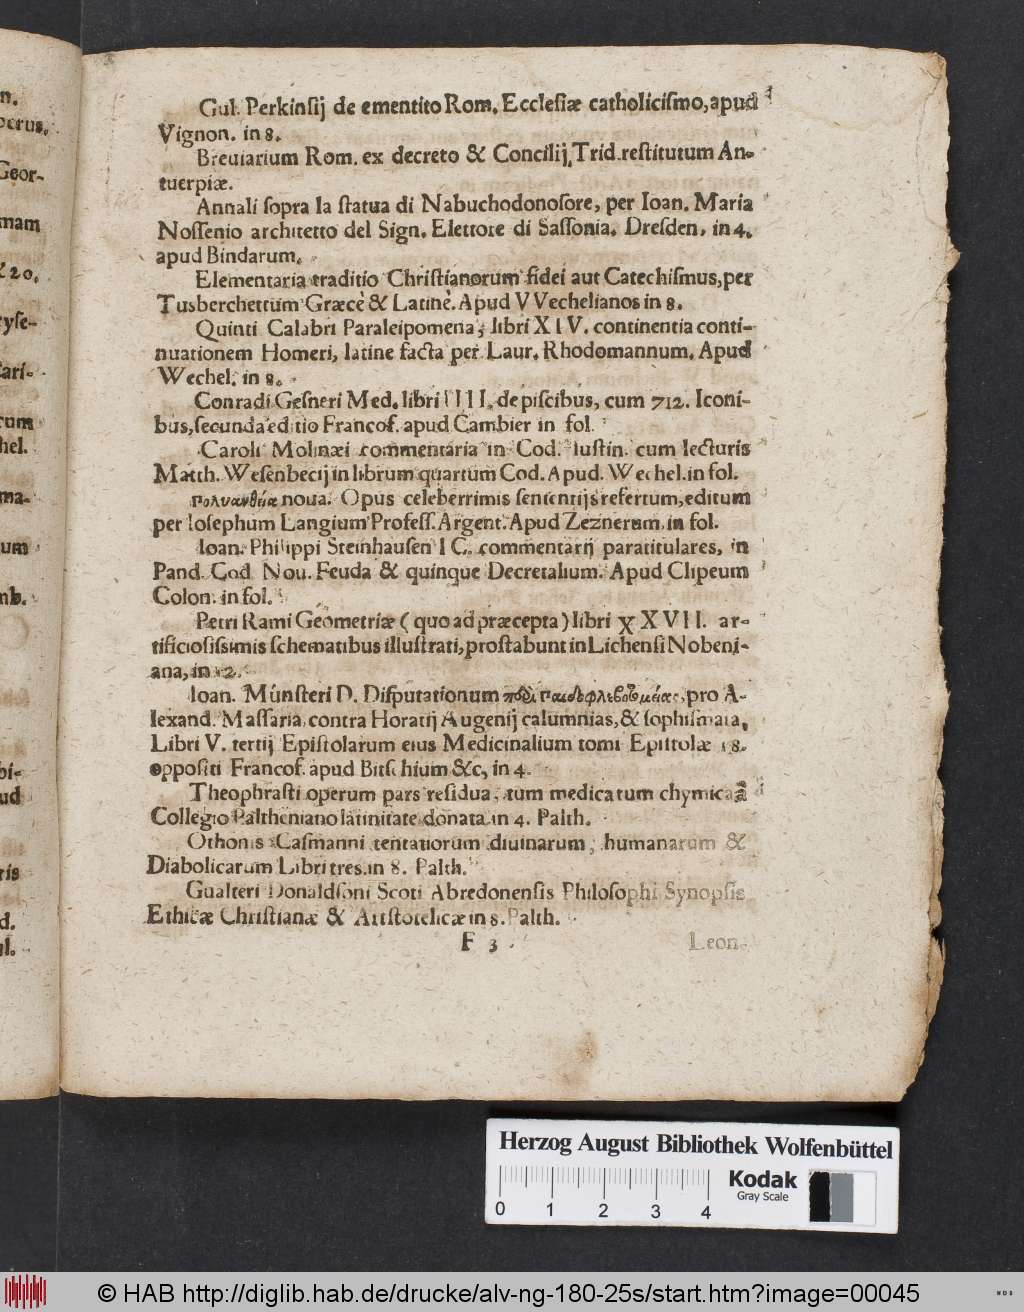 n.
Geor-
mam
& 20.
ryse-
Cari-
rum
hel.
ma-
um
mb.
bi-
ud
ris
d.
Gul. Perkinsij de ementito Rom. Ecclesiæ catholicismo, apud
Vignon. in 8.
Breuiarium Rom. ex decreto & Concilij, Trid. restitutum An-
tuerpiæ.
Annali sopra la statua di Nabuchodonosore, per Ioan. Maria
Nossenio architetto del Sign. Elettore di Sassonia. Dresden, in 4.
apud Bindarum.
Elementaria traditio Christianorum fidei aut Catechismus, per
Tusberchettum Græcè & Latinè. Apud VVechelianos in 8.
Quinti Calabri Paraleipomena, libri XIV. continentia conti-
nuationem Homeri, latine facta per Laur. Rhodomannum. Apud
Wechel. in 8.
Conradi Gesneri Med. libri IIII. de piscibus, cum 712. Iconi-
bus, secunda editio Francof. apud Cambier in fol.
Caroli Molinæi commentaria in Cod. Iustin. cum lecturis
Matth. Wesenbecij in librum quartum Cod. Apud. Wechel. in fol.
πολυανθέα noua. Opus celeberrimis sententijs refertum, editum
per Iosephum Langium Profess. Argent. Apud Zeznerum in fol.
Ioan. Philippi Steinhausen I C. commentarij paratitulares, in
Pand. Cod. Nou. Feuda & quinque Decretalium. Apud Clipeum
Colon. in fol.
Petri Rami Geometriæ (quo ad præcepta) libri XXVII. ar-
tificiosissimis schematibus illustrati, prostabunt in Lichensi Nobeni-
ana, in 12.
Ioan. Munsteri D. Disputationum pro A-
lexand. Massaria, contra Horatij Augenij calumnias, & sophismata,
Libri V. tertij Epistolarum eius Medicinalium tomi Epistolæ 18.
oppositi Francof. apud Bitschium &c, in 4.
Theophrasti operum pars residua, tum medica tum chymica à
Collegio Paltheniano latinitate donata in 4. Palth.
Othonis Casmanni tentatiorum diuinarum, humanarum &
Diabolicarum Libri tres. in 8. Palth.
Gualteri Donaldsoni Scoti Abredonensis Philosophi Synopsis
Ethicæ Christianæ & Aristotelicæ in 8. Palth.
F 3
Leon-
Herzog August Bibliothek Wolfenbüttel
Kodak
Gray Scale
0 1 2 3 4
© HAB http://diglib.hab.de/drucke/alv-ng-180-25s/start.htm?image=00045